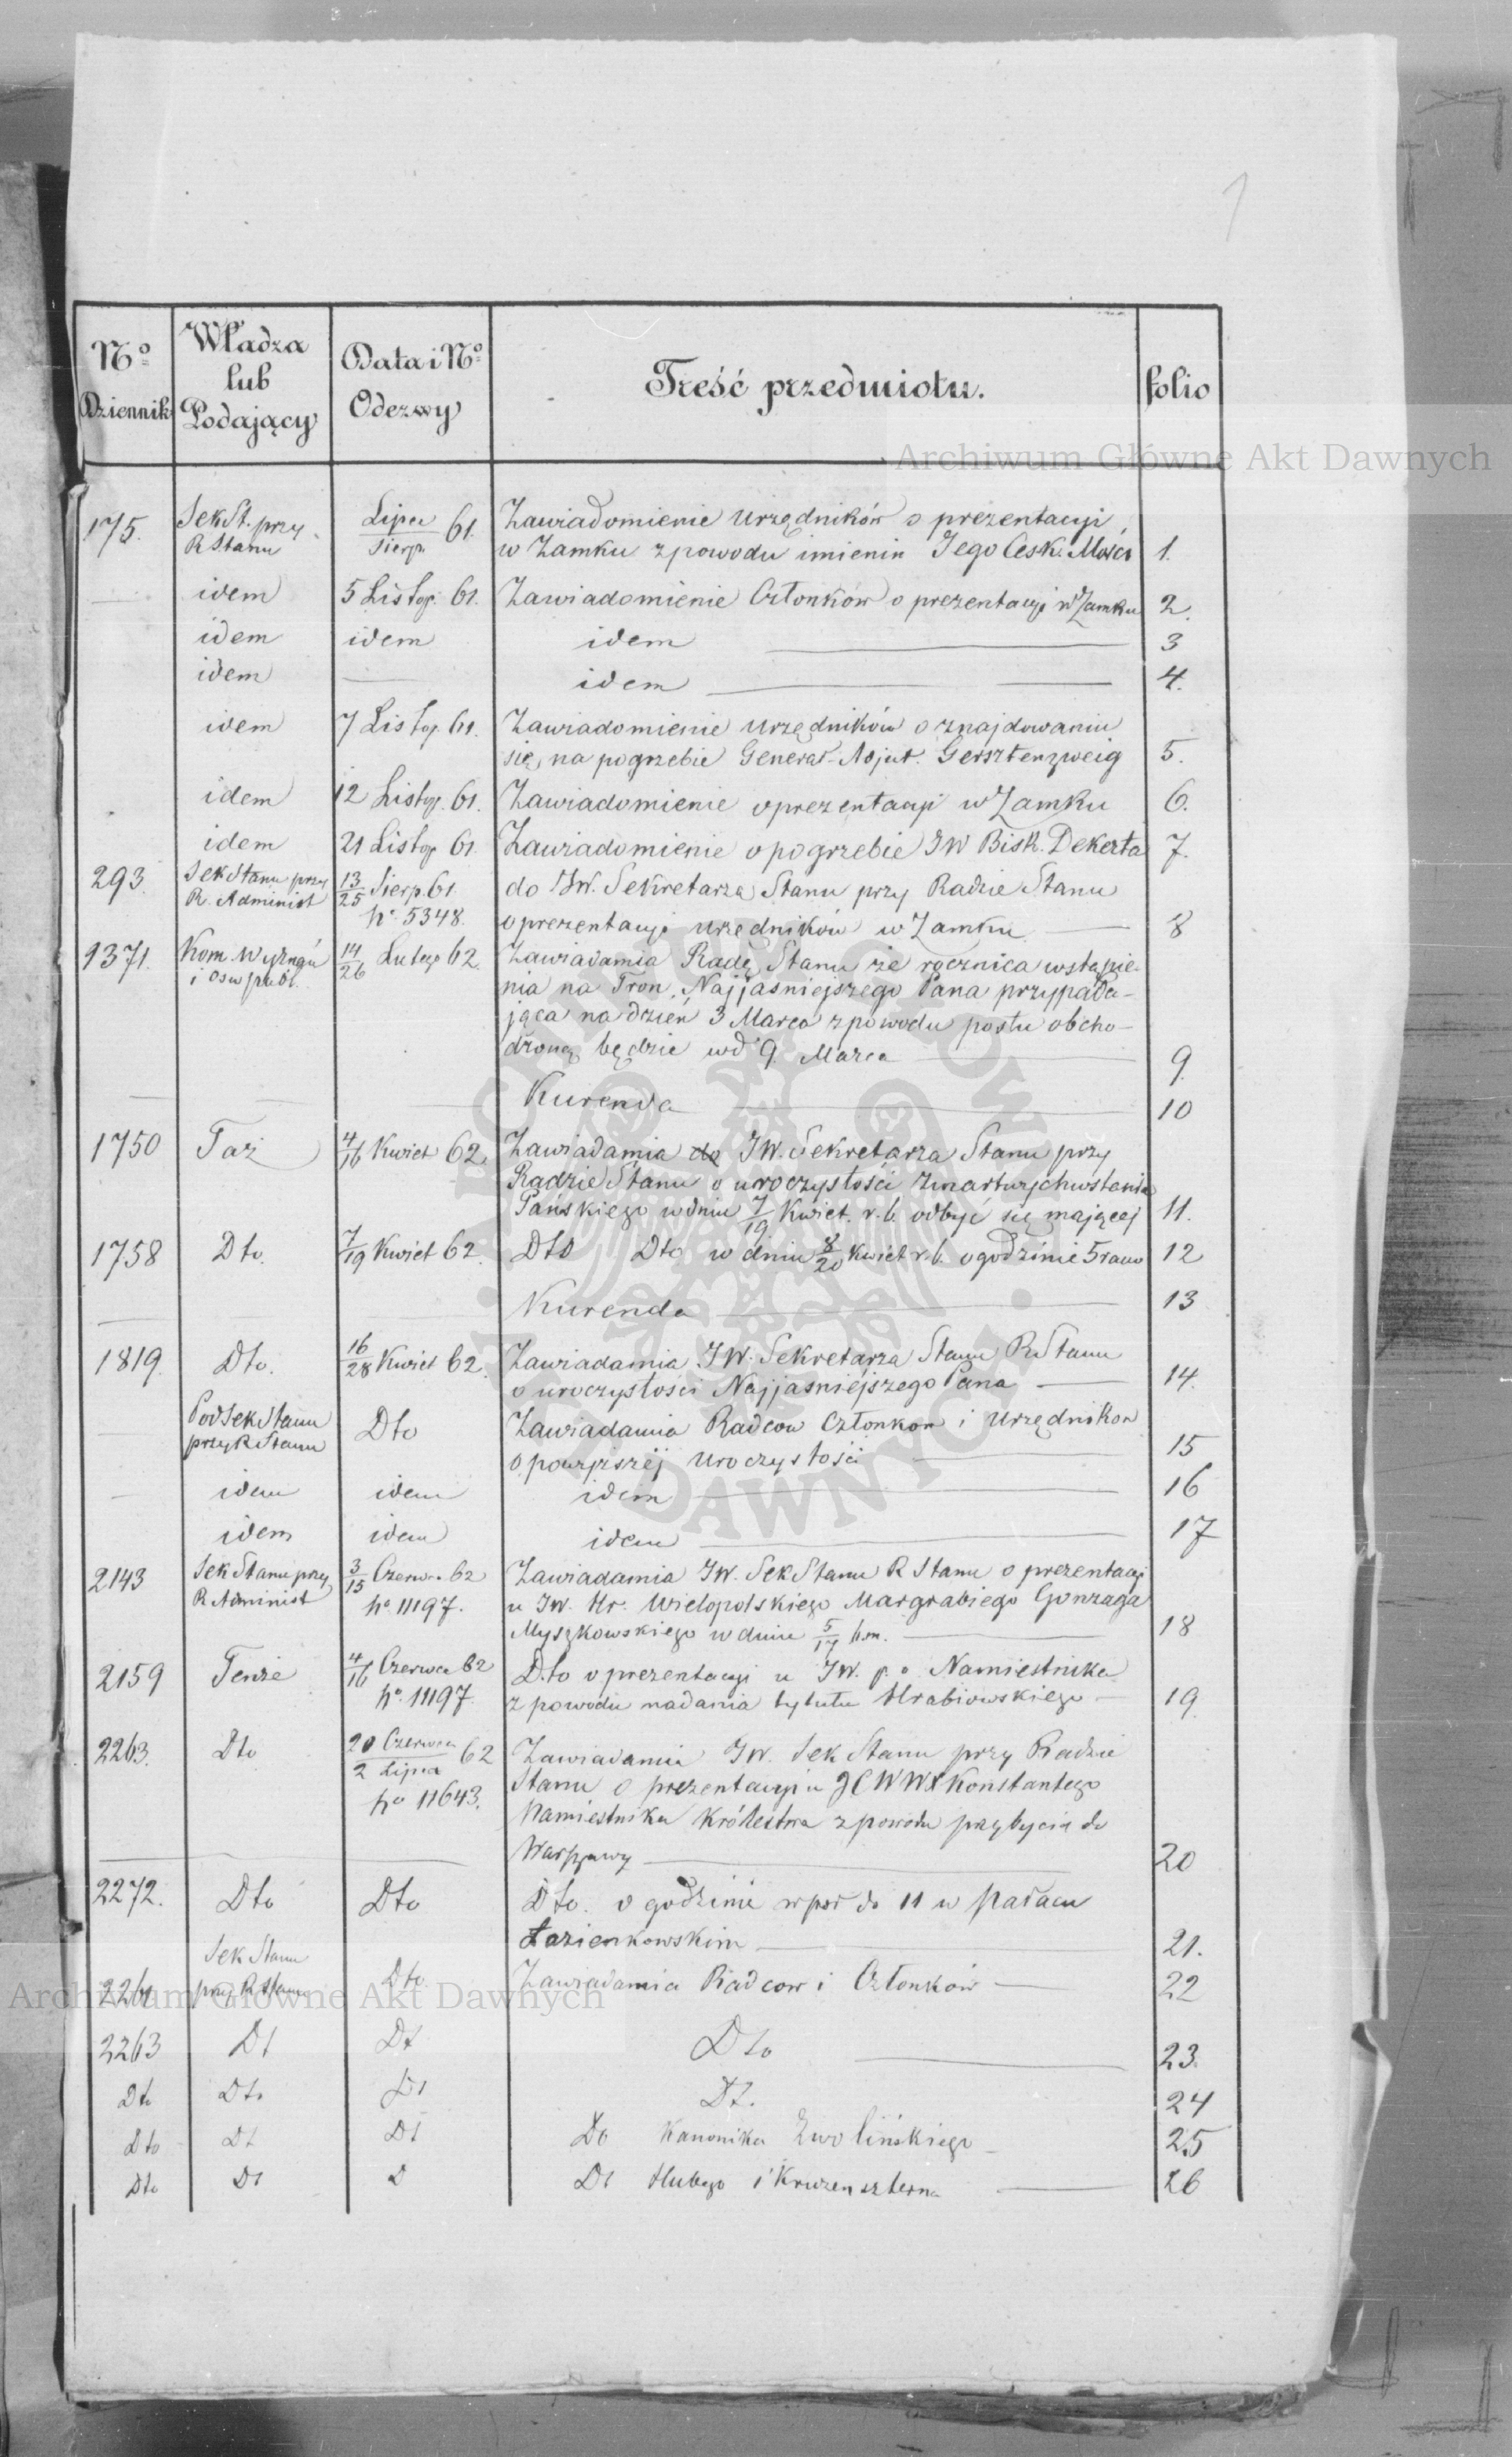 1
No Dziennik
Władza lub Podający
Data i No Odezwy
Treść przedmiotu.
folio
175. Sek St. przy R Stanu Lipca / Sierp. 61. Zawiadomienie Urzędników o prezentacyi
w Zamku z powodu imienin Jego Cesk. Mości 1.
idem 5 Listop. 61. Zawiadomienie Członków o prezentacyi w Zamku 2.
idem idem idem 3
idem idem 4.
idem 7 Listop. 61. Zawiadomienie Urzędników o znajdowaniu
się na pogrzebie Generał-Adjut. Gersztenzweig 5.
idem 12 Listop. 61. Zawiadomienie o prezentacyi w Zamku 6.
idem 21 Listop 61 Zawiadomienie o pogrzebie JW Bisk. Dekerta 7.
293. Sek Stanu przy R. Administ 13/25 Sierp. 61 No 5348. do JW. Sekretarza Stanu przy Radzie Stanu
o prezentacyi Urzędników w Zamku 8
1371. Kom Wyznań i Osw publ. 14/26 Lutego 62. Zawiadamia Radę Stanu że rocznica wstąpie-
nia na Tron, Najjasniejszego Pana przypada-
jąca na dzień 3 Marca z powodu postu obcho-
dzoną będzie wd 9 Marca 9.
Kurenda 10
1750 Taż 4/16 Kwiet 62. Zawiadamia do JW. Sekretarza Stanu przy
Radzie Stanu o uroczystości Zmartwychwstania
Pańskiego w dniu 7/19 Kwiet. r. b. odbyć się mającej 11.
1758 Dto. 7/19 Kwiet 62. Dto Dto w dniu 8/20 Kwiet r. b. o godzinie 5 rano 12
Kurenda 13
1819. Dto. 16/28 Kwiet 62. Zawiadamia JW. Sekretarza Stanu R Stanu
o uroczystości Najjasniejszego Pana 14.
Pod Sek Stanu przy R Stanu Dto Zawiadamia Radcow Członkow i Urzędnikow
o powyższej Uroczystości 15
idem idem idem 16
idem idem idem 17
2143 Sek Stanu przy R Administ 3/15 Czerwca 62 No 11197. Zawiadamia JW. Sek Stanu R Stanu o prezentacyi
u JW. Hr. Wielopolskiego Margrabiego Gonzaga
Myszkowskiego w dniu 5/17 b.m. 18
2159 Tenże 4/16 Czerwca 62 No. 11197. Dto o prezentacyi u JW. p. o. Namiestnika
z powodu nadania tytułu Hrabiowskiego 19.
2263. Dto 20 Czerwca / 2 Lipca 62 No 11643. Zawiadamia JW. Sek Stanu przy Radzie
Stanu o prezentacyi u JCWWX Konstantego
Namiestnika Królestwa z powodu przybycia do
Warszawy 20
2272. Dto Dto Dto. o godzinie w poł do 11 w Pałacu
Łazienkowskim 21.
2261 Sek Stanu przy R Stanu Dto Zawiadamia Radcow i Członków 22
2263 Dt Dt Dto 23.
Dto Dto Dt Dt. 24
Dto Dt Dt Do Kanonika Zwolińskiego 25
Dto Dt D Dt Hubego i Kruzenszterna 26
Archiwum Główne Akt Dawnych
Archiwum Główne Akt Dawnych
ARCHIWUM GŁÓWNE AKT DAWNYCH